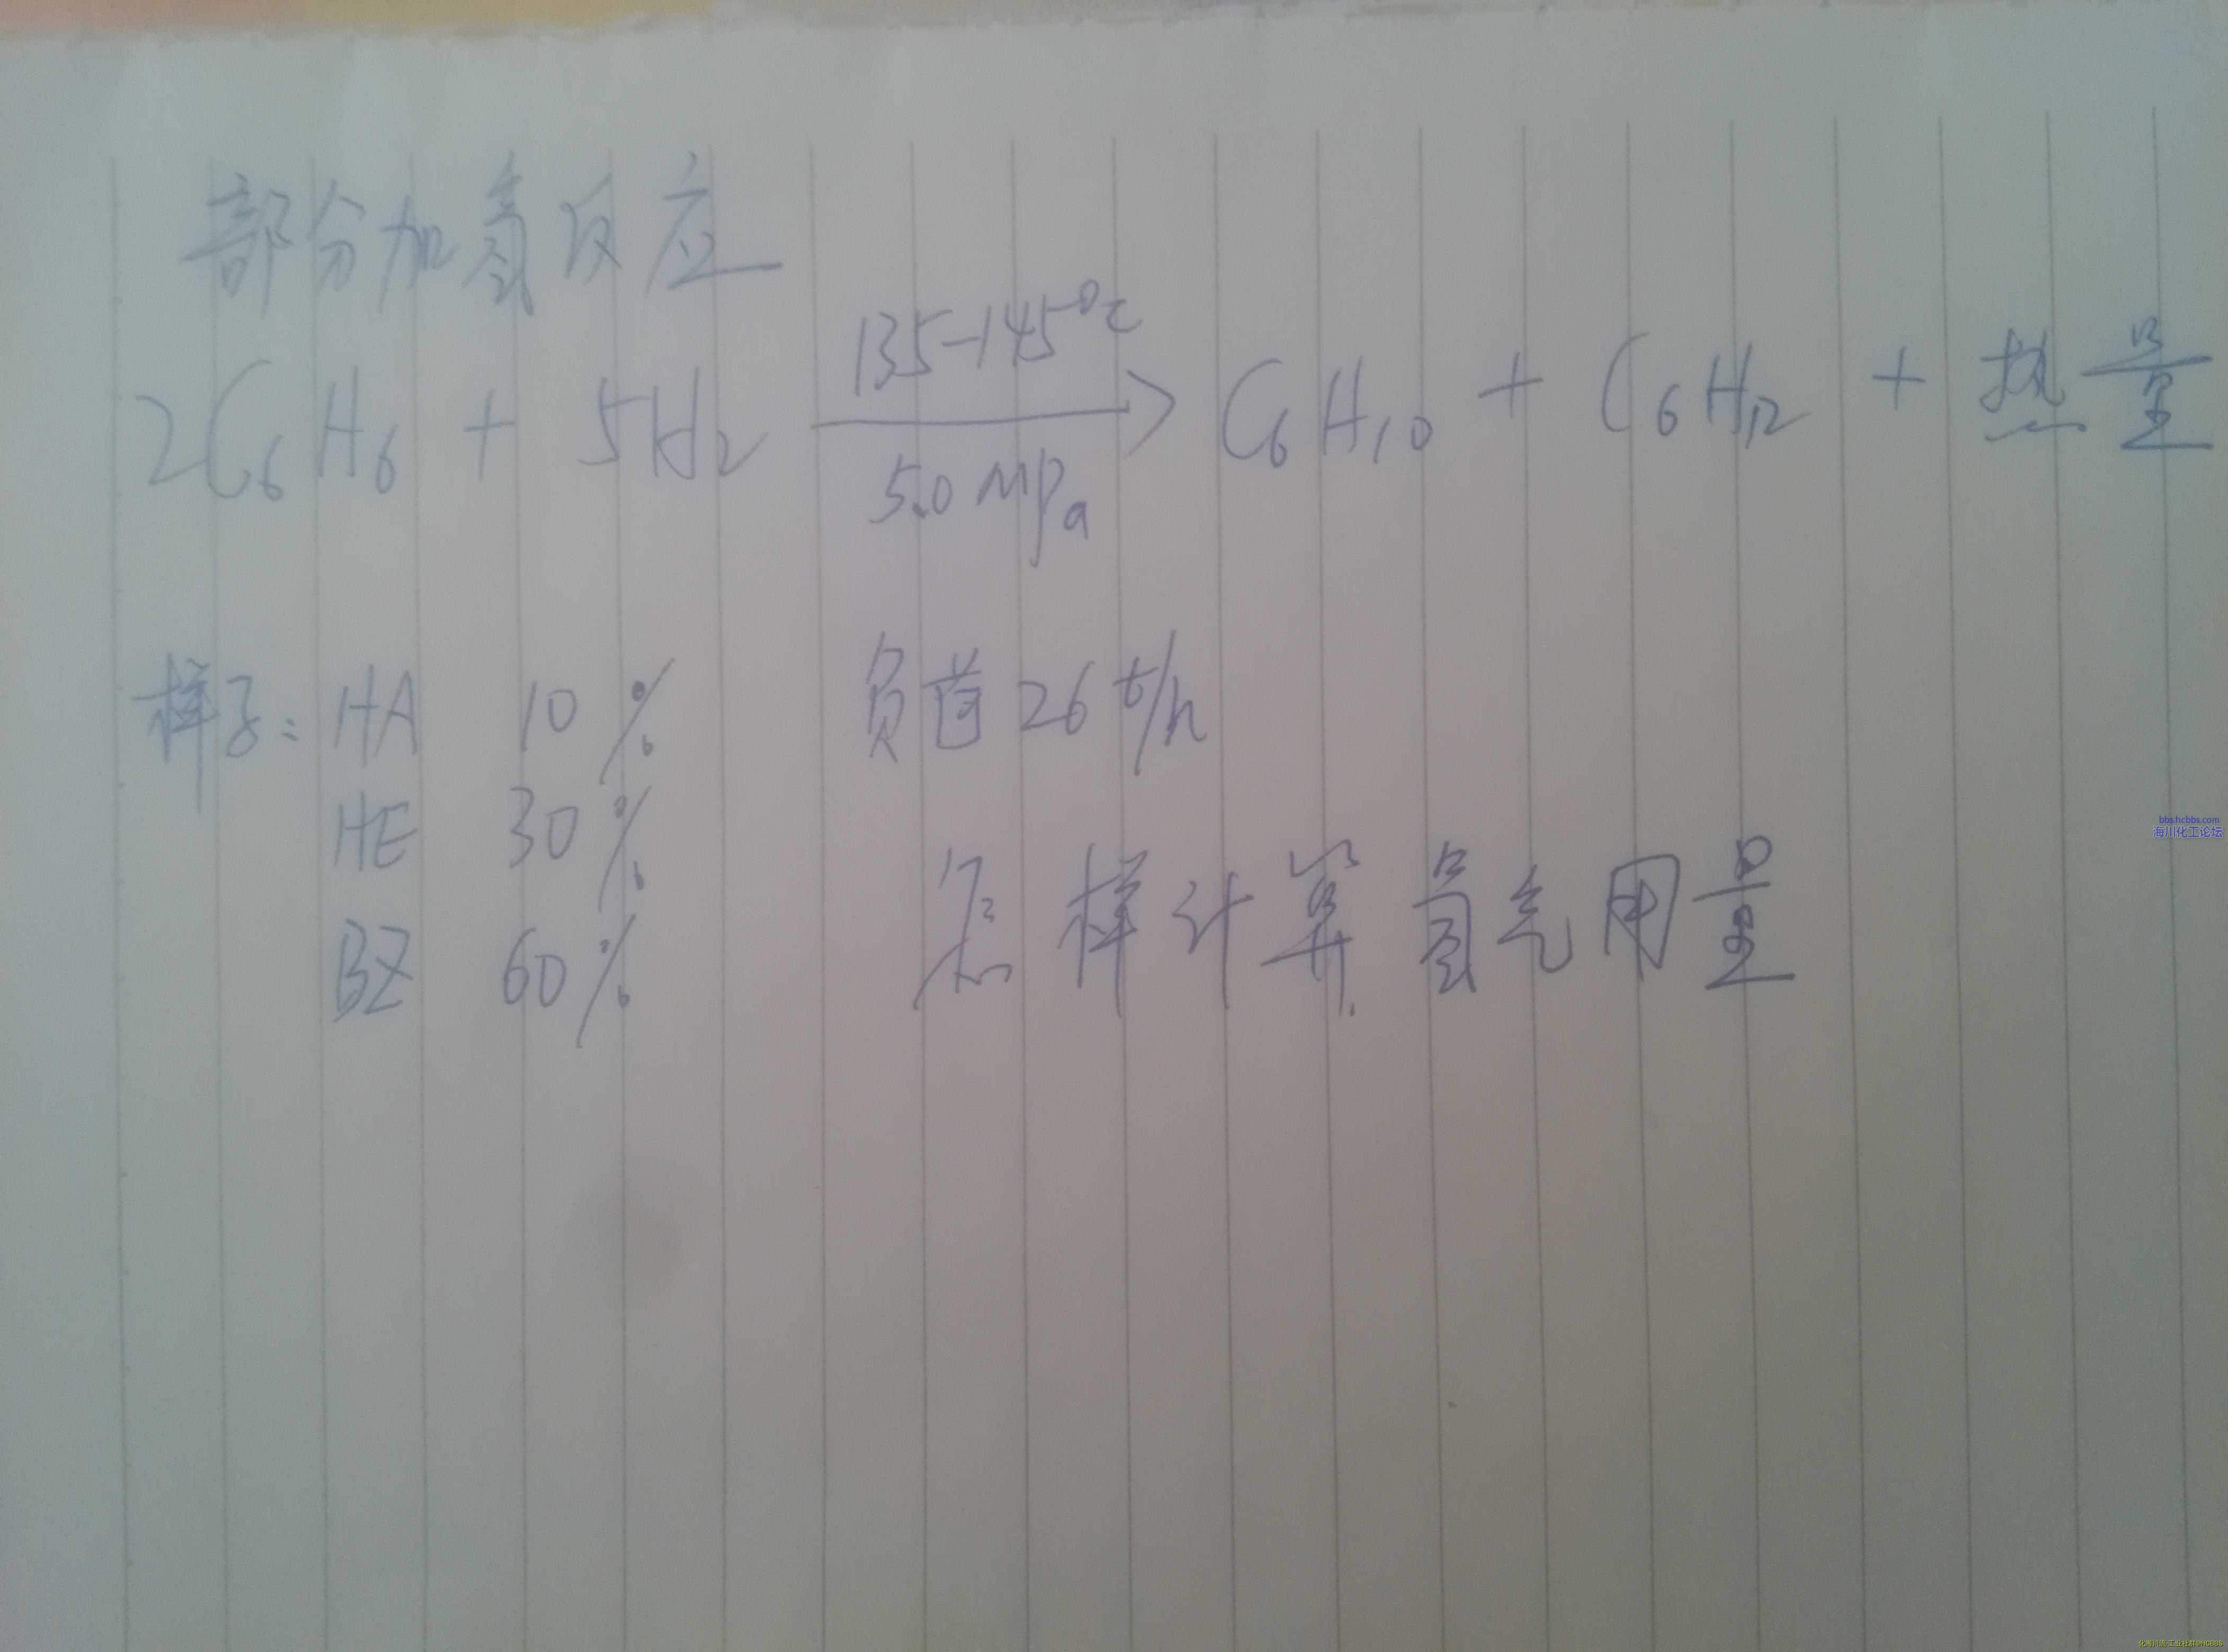 部分加氢反应
2C6H6 + 5H2 135-145℃ 5.0 MPa → C6H10 + C6H12 + 热量
样子: HA 10% 负荷 26 t/h
HE 30%
BZ 60% 怎样计算氢气用量
bbs.hcbbs.com
海川化工论坛